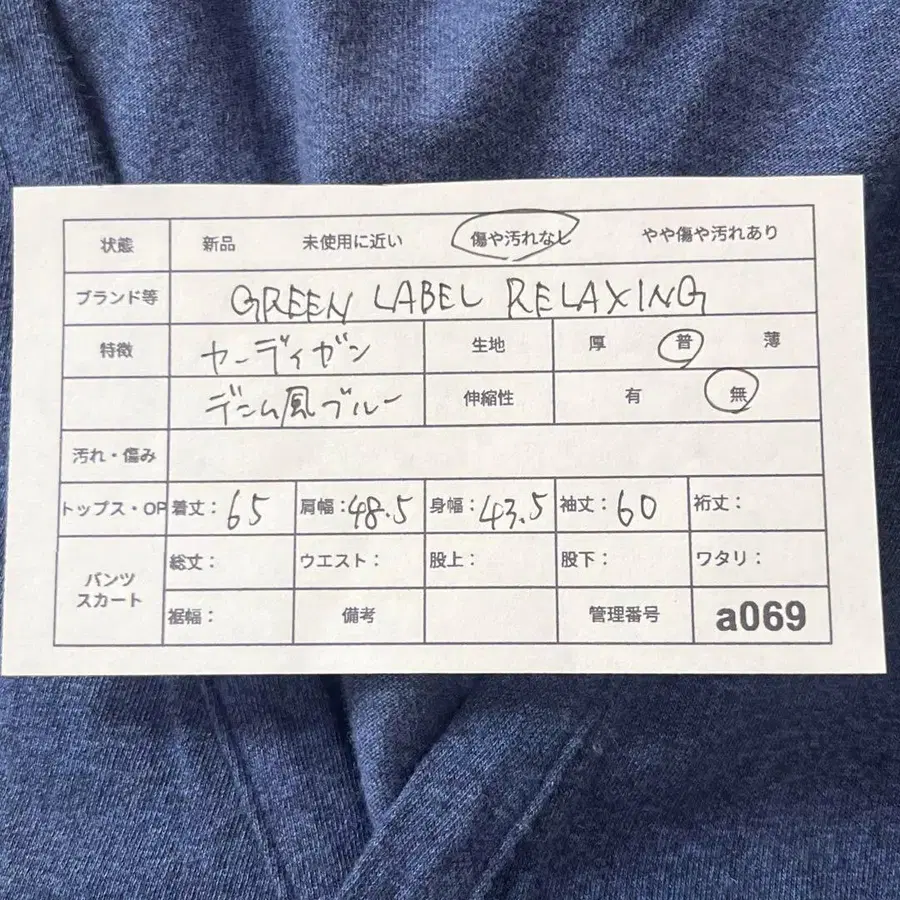 状態 新品 未使用に近い 傷や汚れなし やや傷や汚れあり
ブランド等 GREEN LABEL RELAXING
特徴 カーディガン 生地 厚 普 薄
デニム風ブルー 伸縮性 有 無
汚れ・傷み
トップス・OP 着丈：65 肩幅：48.5 身幅：43.5 袖丈：60 裄丈：
パンツ スカート 総丈： ウエスト： 股上： 股下： ワタリ：
裾幅： 備考 管理番号 a069